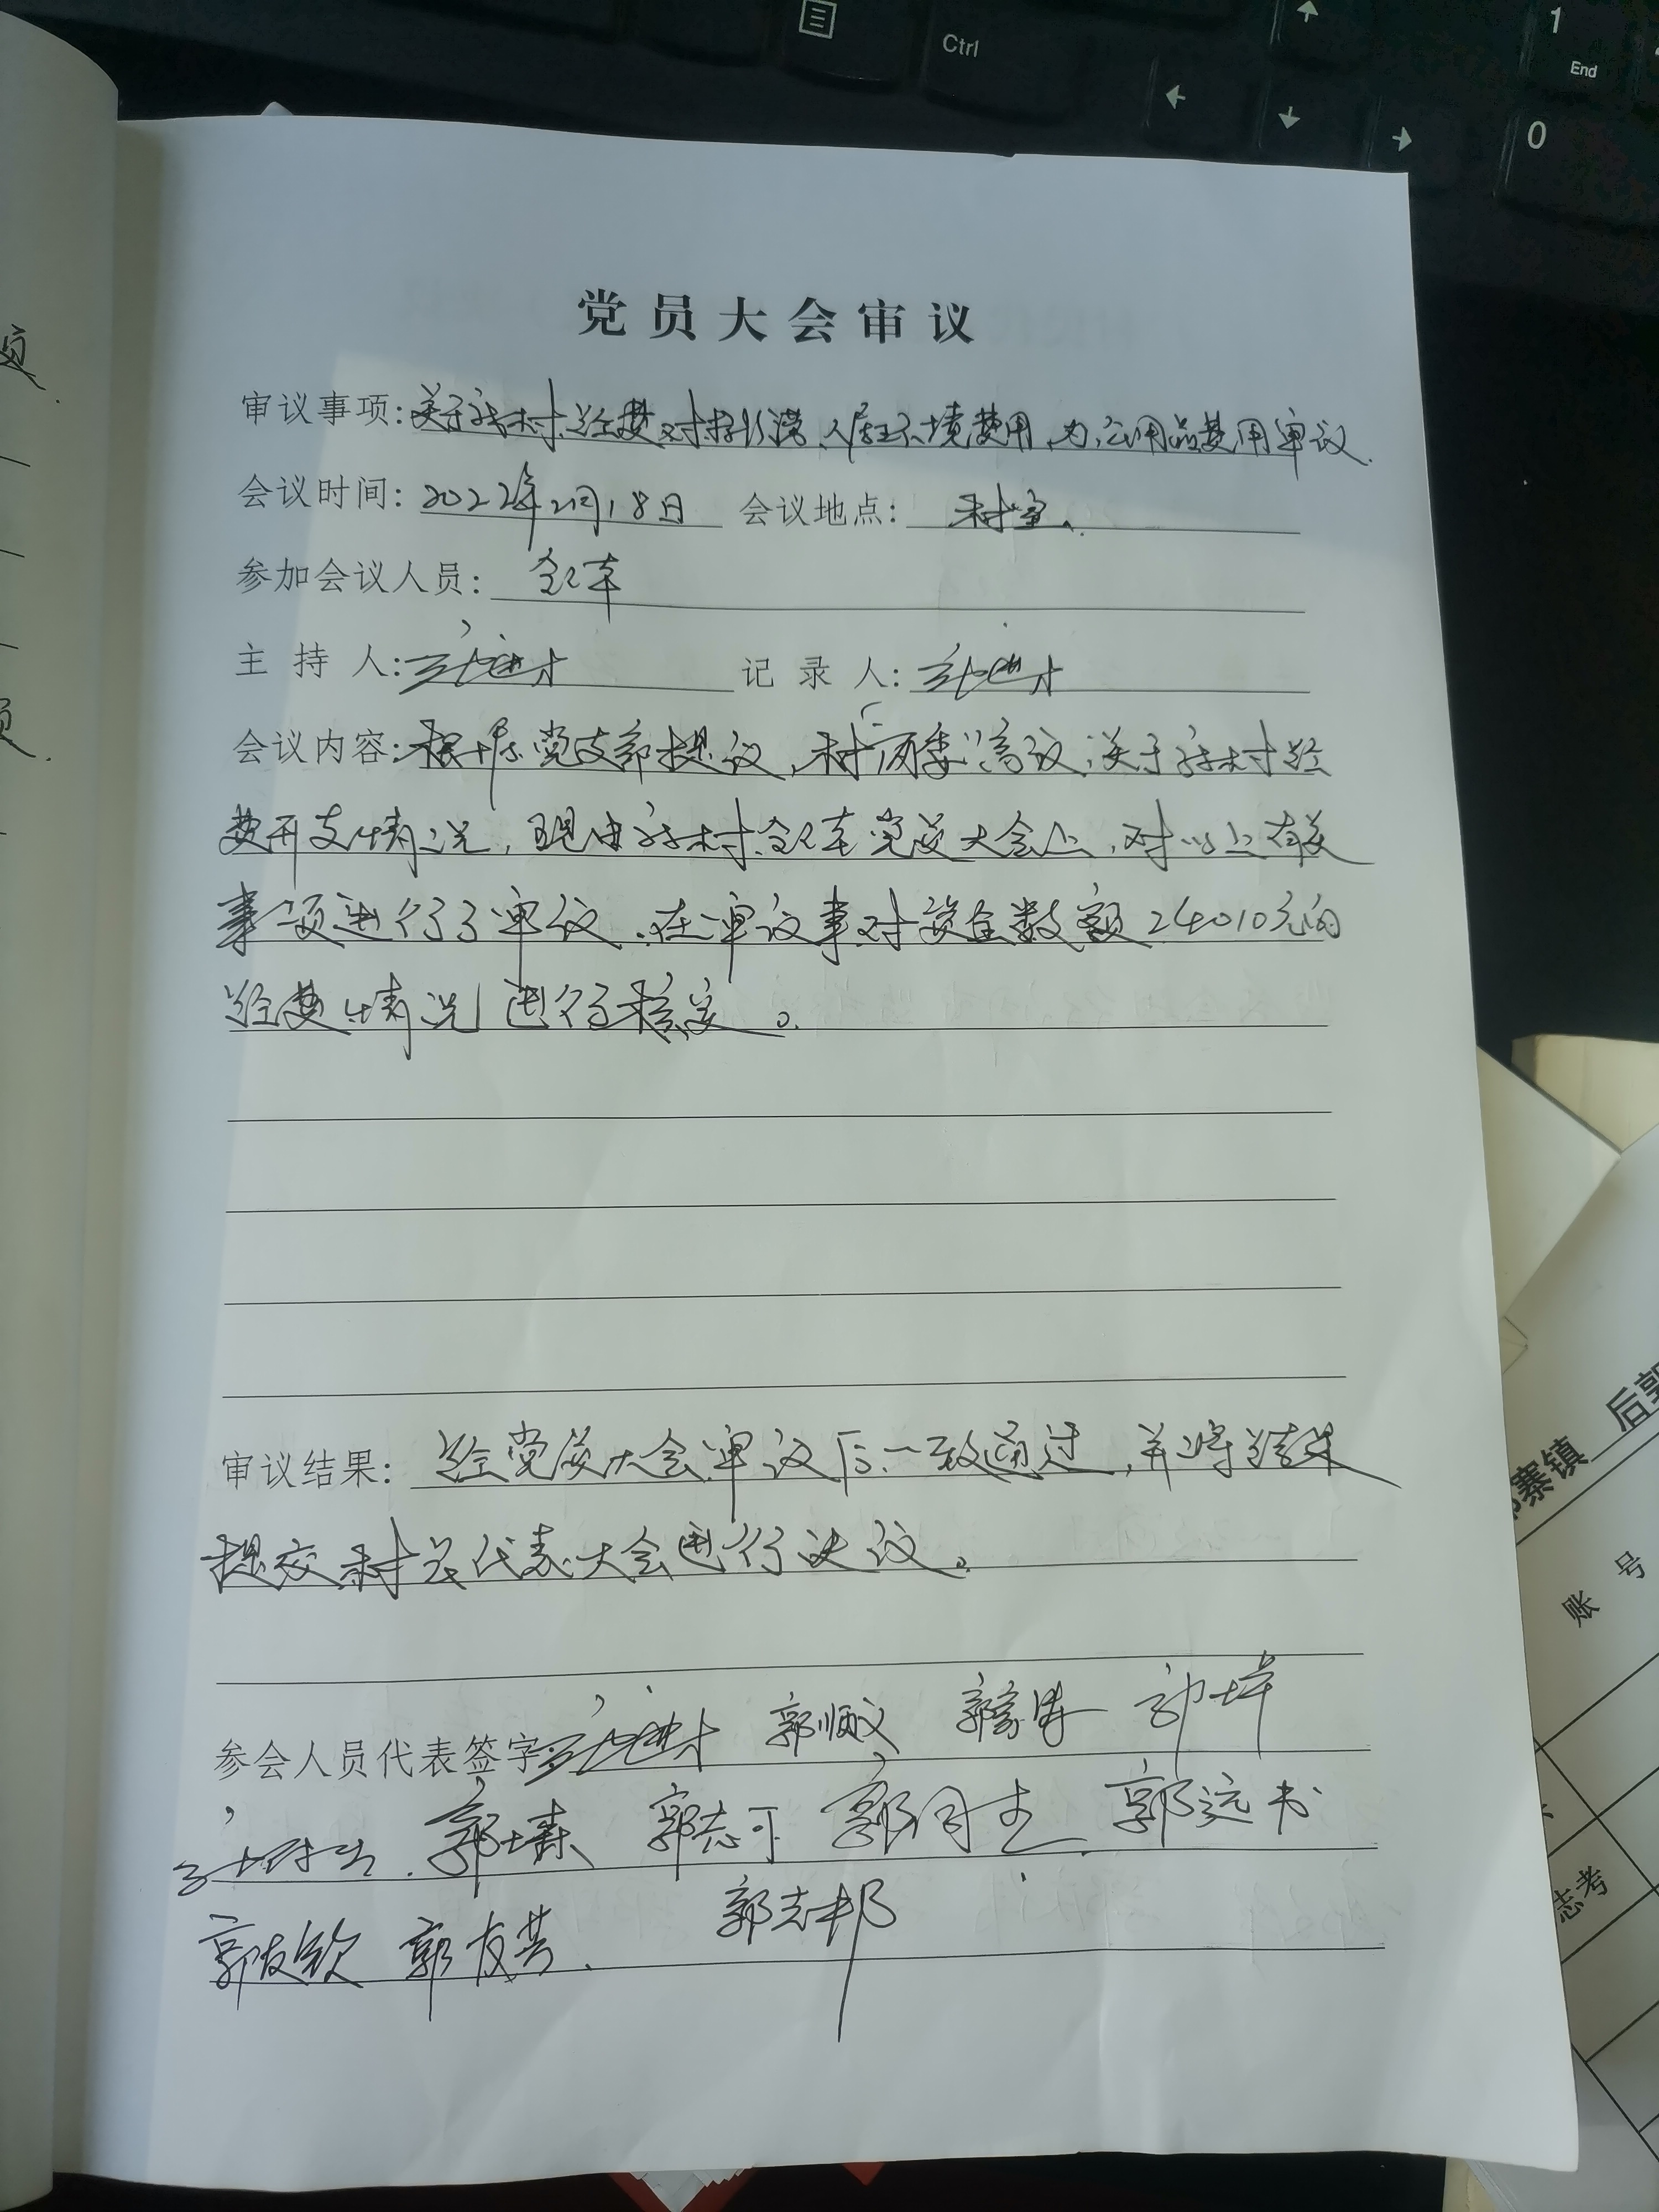 党员大会审议
审议事项:关于我村经费对 人居环境费用,办公用品费用审议.
会议时间:2022年2月18日 会议地点: 村室.
参加会议人员: 全体
主 持 人: 记 录 人:
会议内容:根据党支部提议,村两委商议,关于我村经
费开支情况,现由我村全体党员大会上,对以上有关
事项进行了审议.在审议事对资金数额24010元的
经费情况进行核定。
审议结果: 经党员大会审议后一致通过,并将结果
提交村民代表大会进行决议。
参会人员代表签字: 郭顺义
郭志可 郭同生 郭远书
郭友钦 郭友芳. 郭志邦
Ctrl
1
End
0
寨镇 后郭
账 号
志考